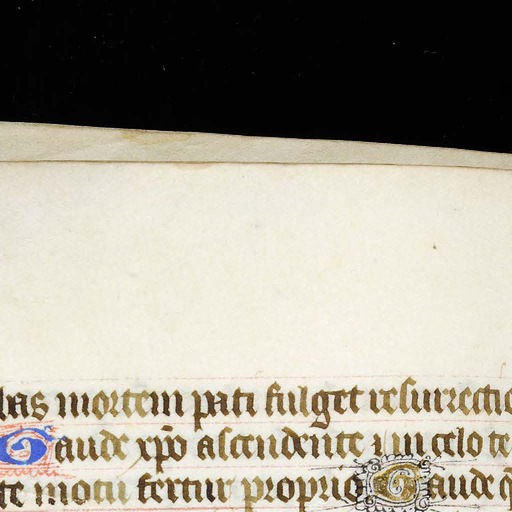 bas mortem pati fulget resurrectio
Gaude xpo ascendente in celo te
te motu fertur proprio Gaude q